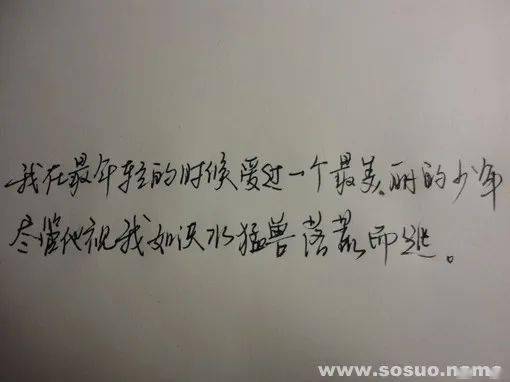 我在最年轻的时候爱过一个最美丽的少年
尽管他视我如洪水猛兽落荒而逃。
www.sosuo.name